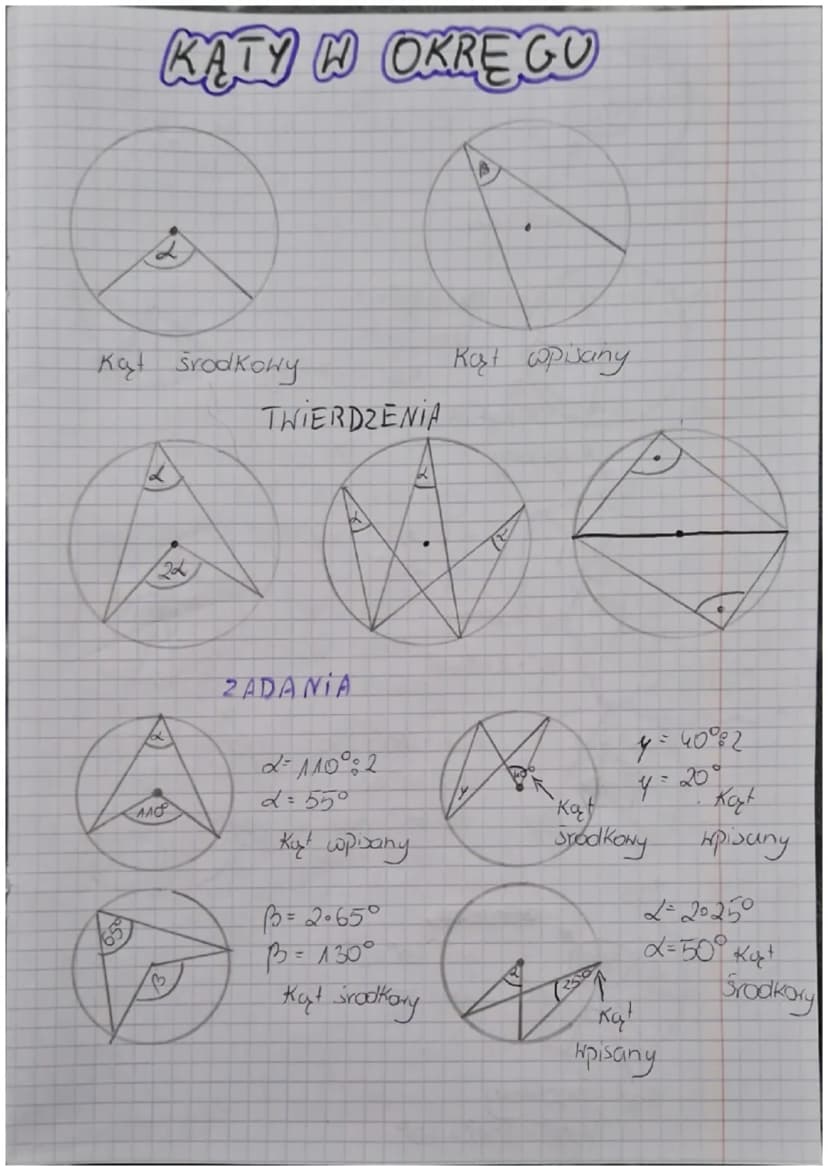 KĄTY W OKRĘGU
α
β
Kąt środkowy
Kąt wpisany
TWIERDZENIA
α
2α
α
α
α
ZADANIA
α
110°
α=110°:2
α=55°
Kąt wpisany
γ
40°
Kąt
środkowy
γ=40°:2
γ=20°
Kąt
wpisany
65°
β
β=2·65°
β=130°
Kąt środkowy
α
25°
Kąt
wpisany
α=2·25°
α=50° Kąt
środkowy